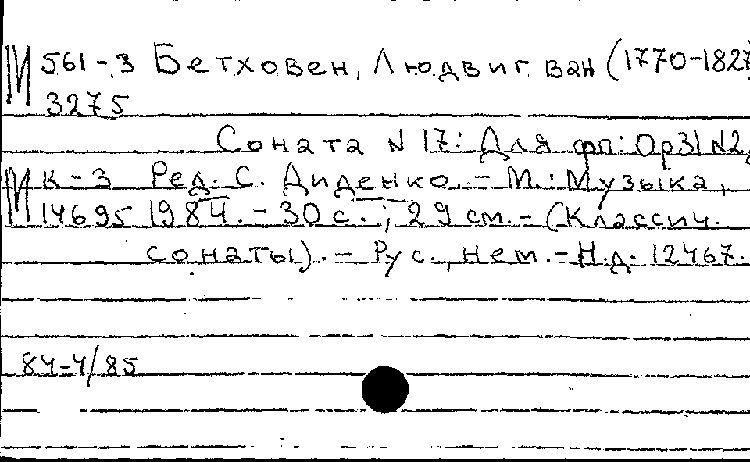 М 561-3 Бетховен, Людвиг ван (1770-1827
3275
Соната N 17: Для фп: Ор31 N2,
М К-3 Ред. С. Диденко. - М.: Музыка,
14695 1984. - 30 с.; 29 см. - (Классич.
сонаты). - Рус., нем. - Н.д. 12467.
84-4/85